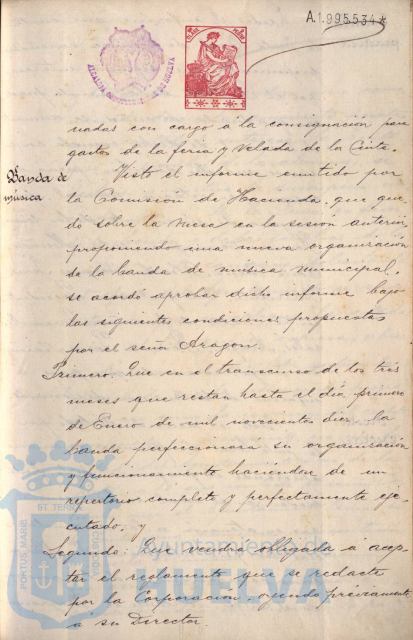 A.1.995.534*
ALCALDIA CONSTITUCIONAL DE HUELVA
nadas con cargo á la consignación para
gastos de la feria y Velada de la Cinta.
Banda de
música
Visto el informe emitido por
la Comisión de Hacienda, que que
dó sobre la mesa en la sesión anterior,
proponiendo una nueva organización
de la banda de música municipal,
se acordó aprobar dicho informe bajo
las siguientes condiciones propuestas
por el señor Aragon.
Primero. Que en el transcurso de los tres
meses que restan hasta el día primero
de Enero de mil novecientos diez la
banda perfeccionará su organización
y funcionamiento haciéndose de un
repertorio completo y perfectamente eje-
cutado, y
Segundo: Que vendrá obligada á acep-
tar el reglamento que se redacte
por la Corporación oyendo previamente
á su Director.
PORTUS MARIS ET TERRAE CUSTODIA
Ayuntamiento de
HUELVA